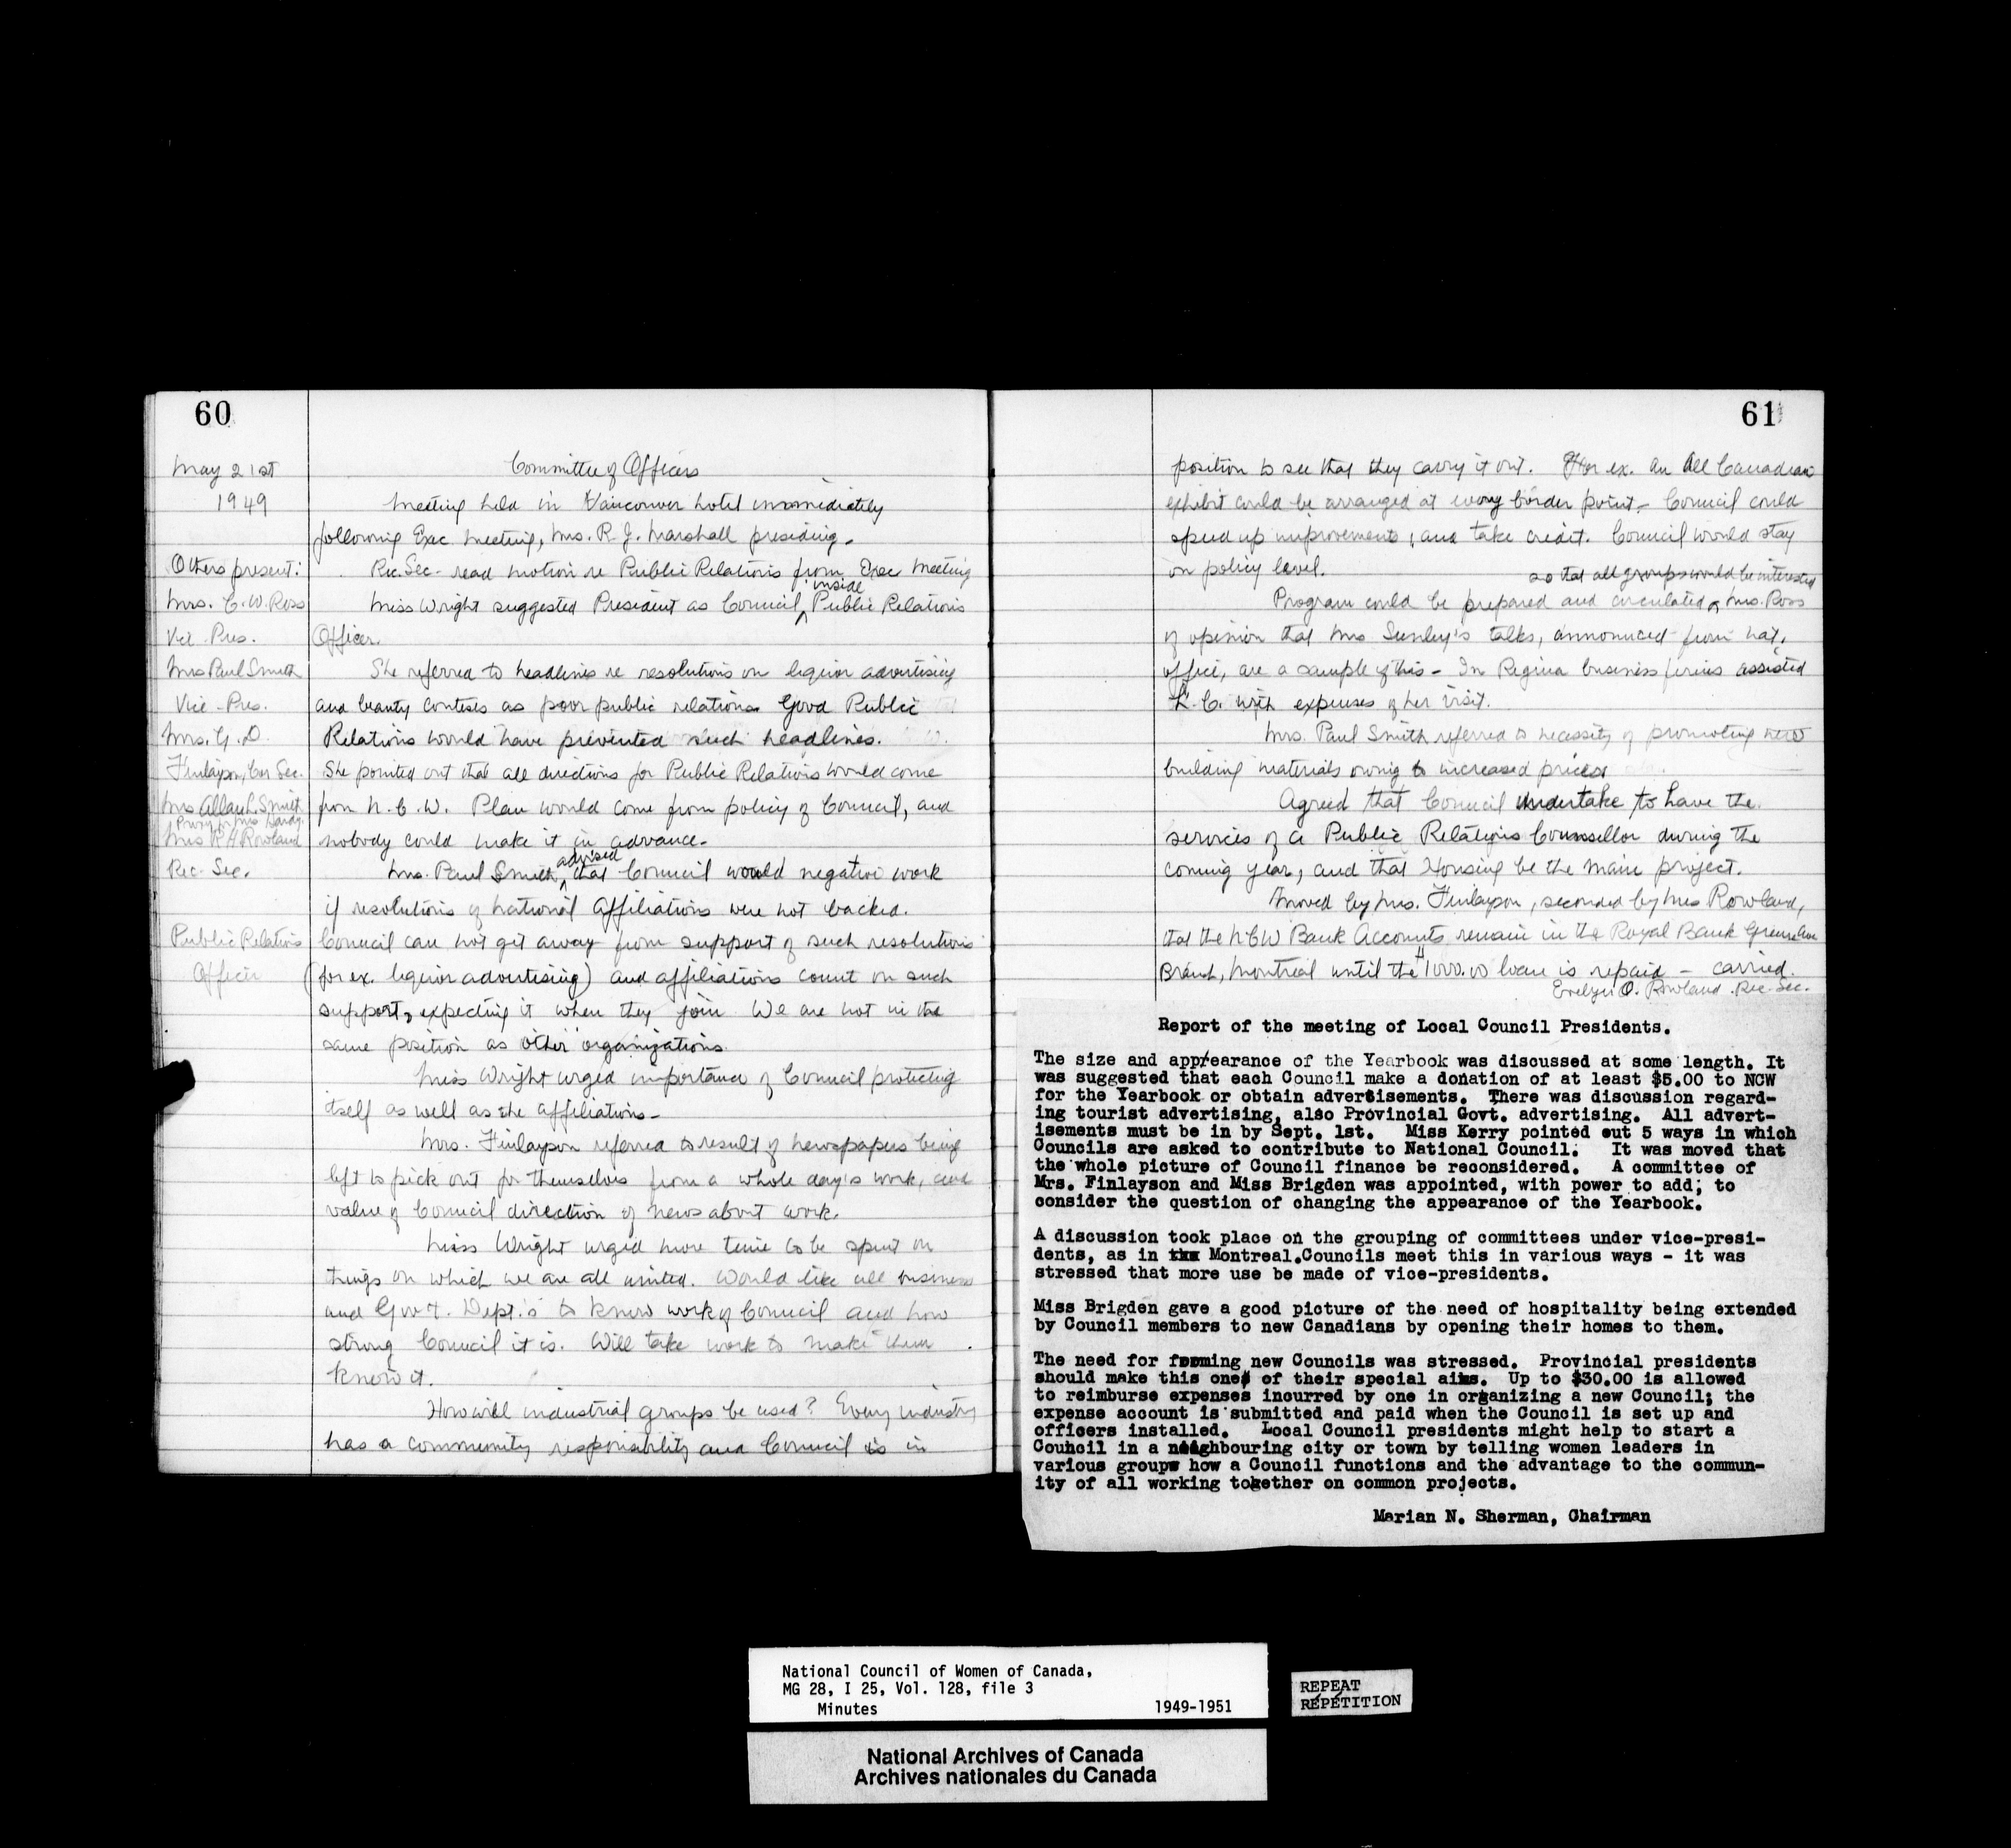 60
May 21st
1949
Others present:
Mrs. C. W. Ross
Vice Pres.
Mrs Paul Smith
Vice-Pres.
Mrs. G. D.
Finlayson, Cor Sec.
Mrs Allan L. Smith
Proxy for Mrs Hardy.
Mrs R H Rowland
Rec. Sec.
Public Relations
Officer
Committee of Officers
Meeting held in Vancouver hotel immediately
following Exec meeting, Mrs. R. J. Marshall presiding.
Rec. Sec. read motion re Public Relations from Exec meeting
inside
Miss Wright suggested President as Council Public Relations
Officer.
She referred to headlines re resolutions on liquor advertising
and beauty contests as poor public relations Good Public
Relations would have prevented such headlines.
She pointed out that all directions for Public Relations would come
from N. C. W. Plan would come from policy of Council, and
nobody could make it in advance.
advised
Mrs. Paul Smith, that Council would negative work
if resolutions of National Affiliations were not backed.
Council can not get away from support of such resolutions
(for ex. liquor advertising) and affiliations count on such
support, expecting it when they join We are not in the
same position as "other" organizations.
Miss Wright urged importance of Council protecting
itself as well as the affiliations-
Mrs. Finlayson referred to result of newspapers being
left to pick out for themselves from a whole day's work, and
value of Council direction of news about work.
Miss Wright urged more time to be spent on
things on which we are all united. Would like all business
and Gov't. Dept.'s to know work of Council and how
strong Council it is. Will take work to make them
know it.
How will industrial groups be used? Every industry
has a community responsibility and Council is in
61
position to see that they carry it out. For ex. an All Canadian
exhibit could be arranged at every border point,- Council could
speed up improvements, and take credit. Council would stay
on policy level.
so that all groups would be interested
Program could be prepared and circulated, Mrs. Ross
of opinion that Mrs Sunley's talks, announced from Nat.
office, are a sample of this - In Regina business firms assisted
L. C. with expenses of her visit.
Mrs. Paul Smith referred to necessity of promoting new
building materials owing to increased prices
Agreed that Council undertake to have the
services of a Public Relations Counsellor during the
coming year, and that Housing be the main project.
Moved by Mrs. Finlayson, seconded by Mrs Rowland,
that the NCW Bank Accounts remain in the Royal Bank Greene Ave
Branch, Montreal until the $1000.00 loan is repaid - carried.
Evelyn O. Rowland Rec. Sec.
Report of the meeting of Local Council Presidents.
The size and appearance of the Yearbook was discussed at some length. It
was suggested that each Council make a donation of at least $5.00 to NCW
for the Yearbook or obtain advertisements. There was discussion regard-
ing tourist advertising, also Provincial Govt. advertising. All advert-
isements must be in by Sept. 1st. Miss Kerry pointed out 5 ways in which
Councils are asked to contribute to National Council. It was moved that
the whole picture of Council finance be reconsidered. A committee of
Mrs. Finlayson and Miss Brigden was appointed, with power to add; to
consider the question of changing the appearance of the Yearbook.
A discussion took place on the grouping of committees under vice-presi-
dents, as in Montreal.Councils meet this in various ways - it was
stressed that more use be made of vice-presidents.
Miss Brigden gave a good picture of the need of hospitality being extended
by Council members to new Canadians by opening their homes to them.
The need for forming new Councils was stressed. Provincial presidents
should make this one of their special aims. Up to $30.00 is allowed
to reimburse expenses incurred by one in organizing a new Council; the
expense account is submitted and paid when the Council is set up and
officers installed. Local Council presidents might help to start a
Council in a neighbouring city or town by telling women leaders in
various groups how a Council functions and the advantage to the commun-
ity of all working together on common projects.
Marian N. Sherman, Chairman
National Council of Women of Canada,
MG 28, I 25, Vol. 128, file 3
Minutes 1949-1951
REPEAT
RÉPÉTITION
National Archives of Canada
Archives nationales du Canada